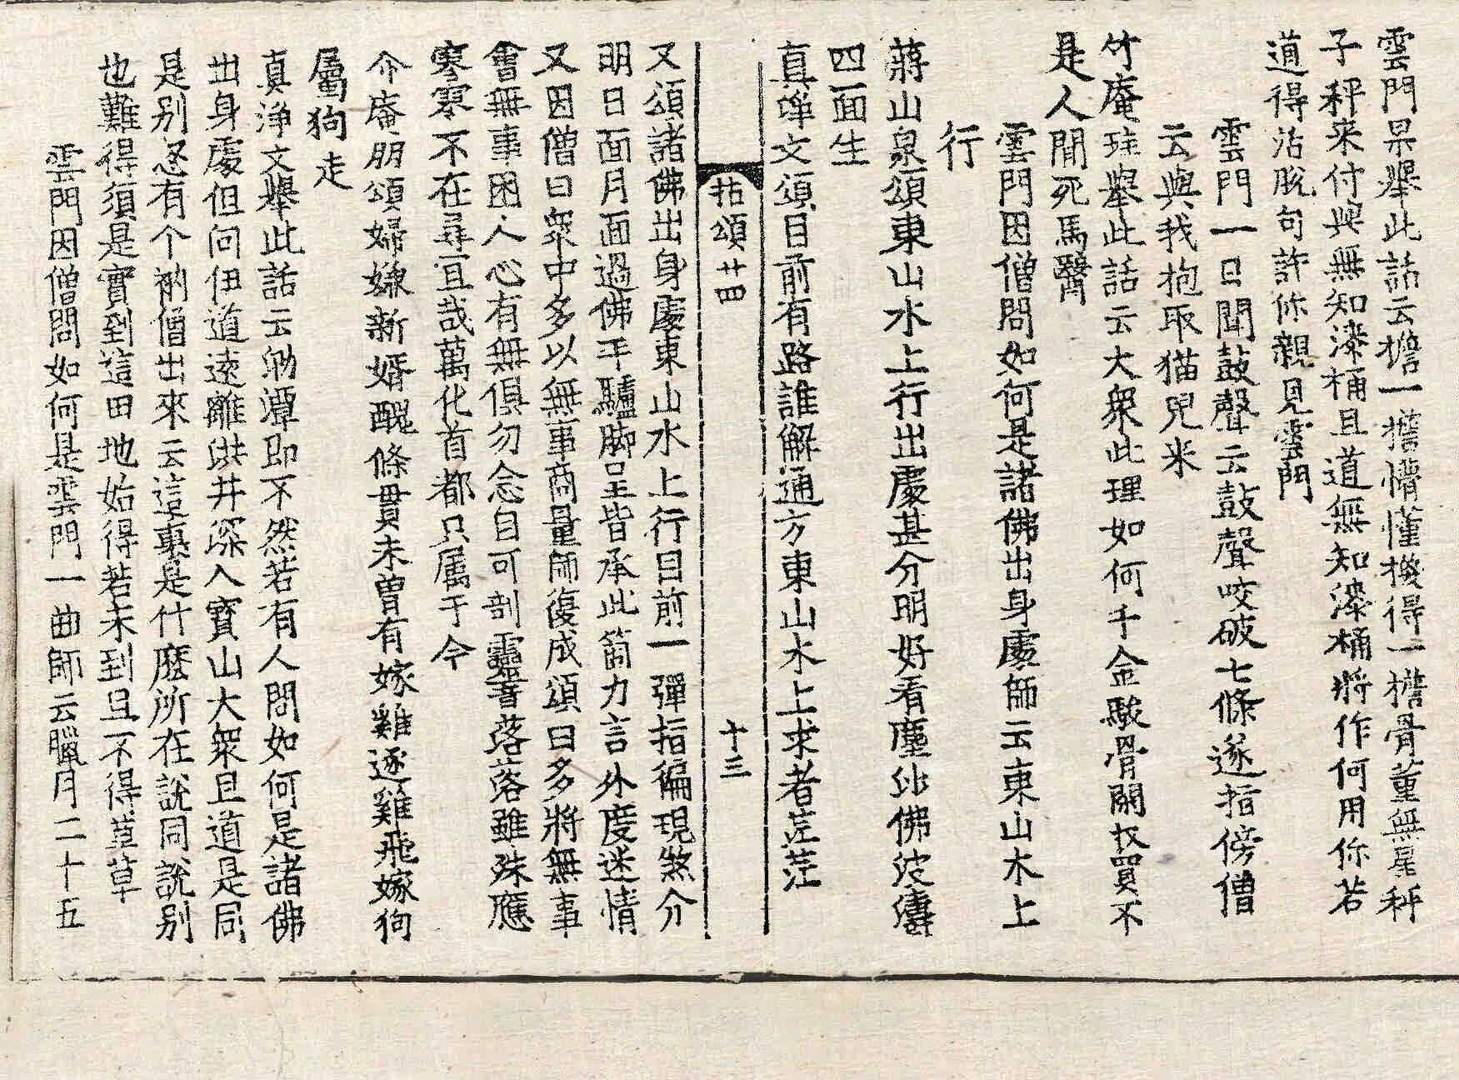 雲門杲舉此話云擔一擔懵懂換得一擔骨董無星秤
子秤来付與無知漆桶且道無知漆桶將作何用你若
道得活脫句許你親見雲門
雲門一日聞鼓聲云鼓聲咬破七條遂指傍僧
云與我抱取猫兒来
竹庵珪舉此話云大衆此理如何千金駿骨闘收買不
是人間死馬醫
雲門因僧問如何是諸佛出身處師云東山水上
行
蔣山泉頌東山水上行出處甚分明好看塵沙佛波濤
四面生
真淨文頌目前有路誰解通方東山水上求者茫茫
拈頌廿四
十三
又頌諸佛出身處東山水上行目前一彈指徧現煞分
明日面月面過佛手驢脚呈皆承此箇力言外度迷情
又因僧曰衆中多以無事商量師復成頌曰多將無事
會無事困人心有無俱勿念自可剖靈音落落雖殊應
寥寥不在尋宜哉萬化首都只属于今
介庵朋頌婦嫌新婿醜條貫未曾有嫁雞逐雞飛嫁狗
屬狗走
真淨文舉此話云泐潭即不然若有人問如何是諸佛
出身處但向伊道遠離洪井深入寶山大衆且道是同
是别忽有个衲僧出來云這裏是什麼所在說同說别
也難得須是實到這田地始得若未到且不得莽草
雲門因僧問如何是雲門一曲師云臘月二十五